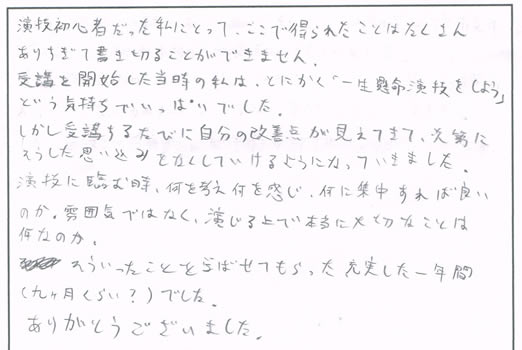 演技初心者だった私にとって、ここで得られたことはたくさん
ありすぎて書き切ることができません。
受講を開始した当時の私は、とにかく「一生懸命演技をしよう」
という気持ちでいっぱいでした。
しかし受講するたびに自分の改善点が見えてきて、次第に
そうした思い込みをなくしていけるようになっていきました。
演技に臨む時、何を考え何を感じ、何に集中すれば良い
のか。雰囲気ではなく、演じる上で本当に大切なことは
何なのか。
そういったことを学ばせてもらった充実した一年間
(九ヶ月くらい?)でした。
ありがとうございました。